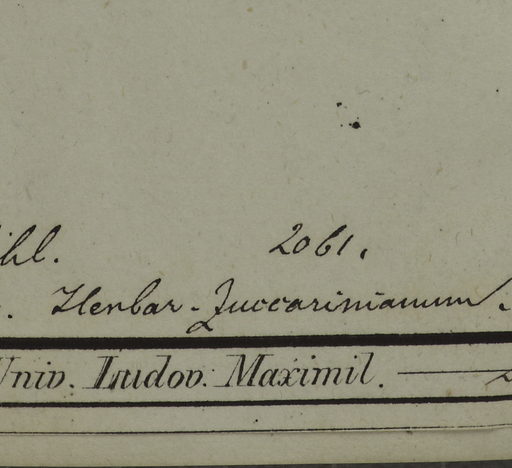 2061.
Herbar. Zuccarinianum.
Univ. Ludov. Maximil.